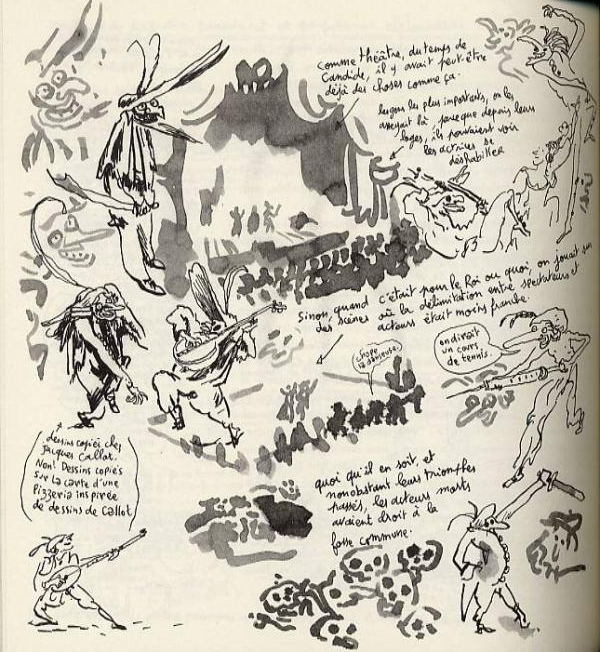 comme théâtre, du temps de
Candide, il y avait peut-être
déjà des choses comme ça.
les gens les plus importants, on les
asseyait là parce que depuis leurs
loges, ils pouvaient voir
les actrices se
déshabiller
Sinon, quand c'était pour le Roi ou quoi, on jouait sur
des scènes où la délimitation entre spectateurs et
acteurs était moins franche.
chope
la danseuse.
on dirait
un cours
de tennis.
dessins copiés chez
Jacques Callot.
Non! Dessins copiés
sur la carte d'une
Pizzeria inspirée
de dessins de Callot
quoi qu'il en soit, et
nonobstant leurs triomphes
passés, les acteurs morts
avaient droit à la
fosse commune.